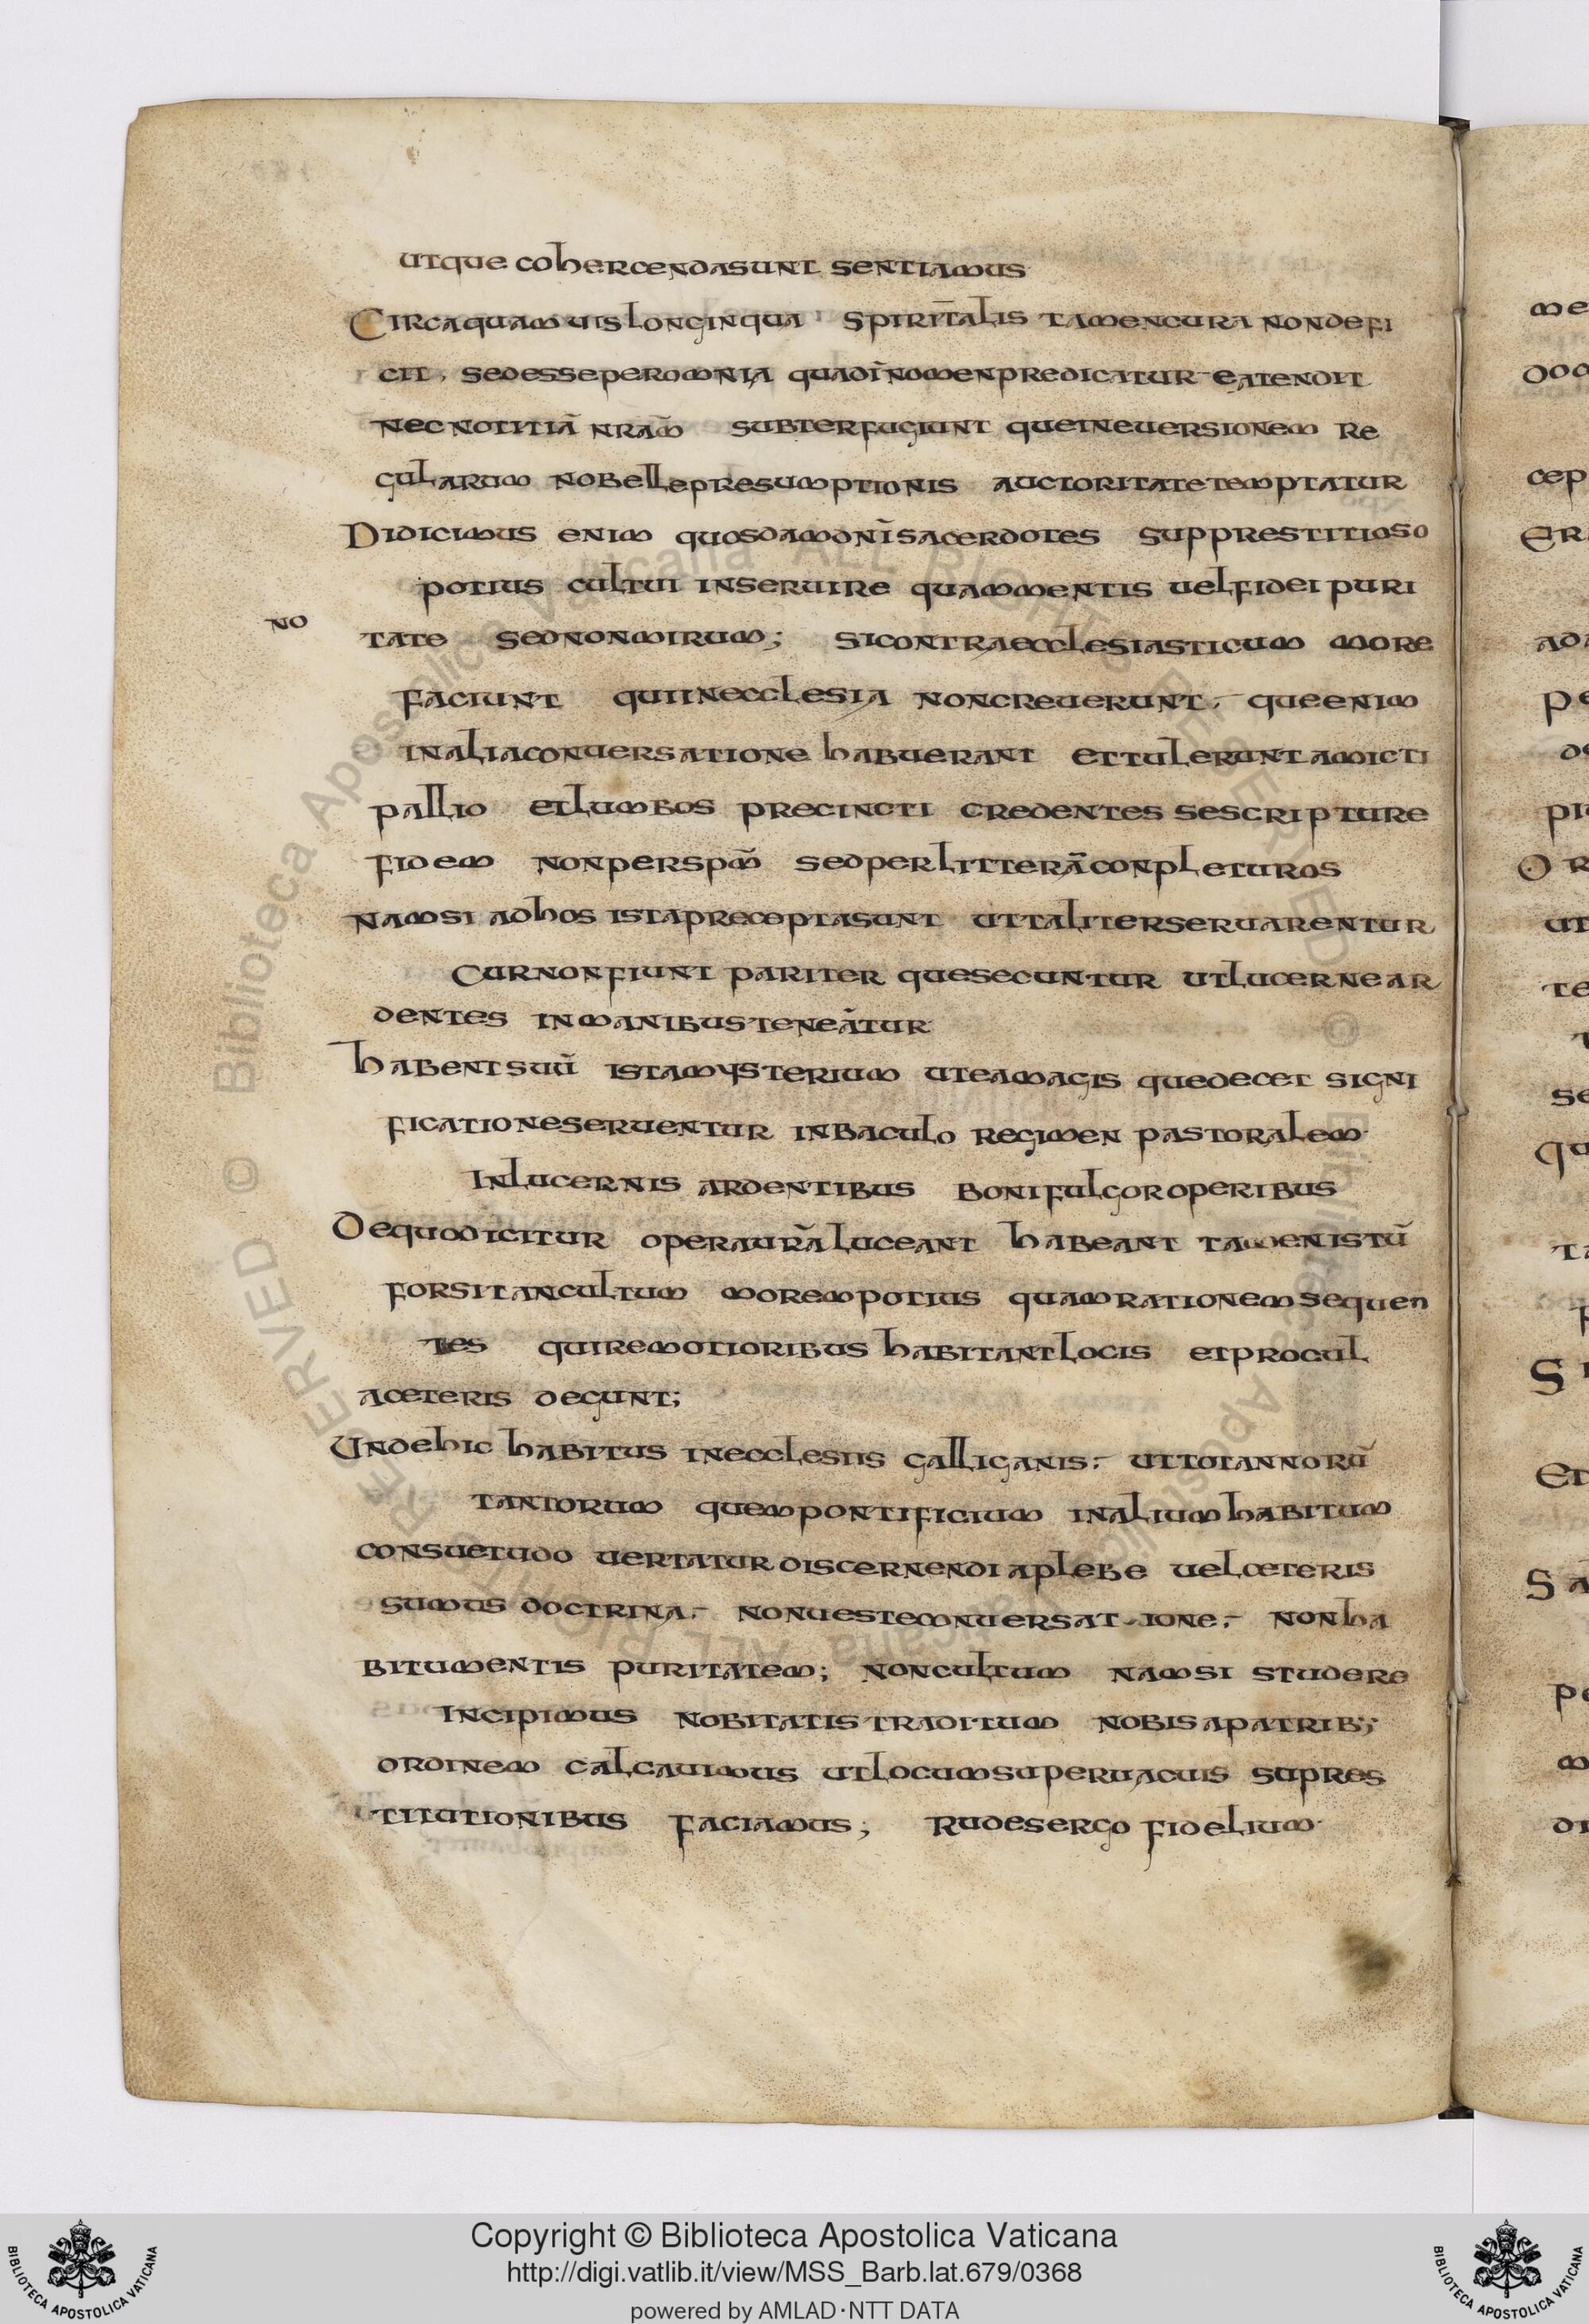 utque cohercenda sunt sentiamus
Circa quamuis longinqua spirit̄alis tamen cura non defi
cit. sed esse per omnia qua dī nomen predicatur eatendit
nec notitiā nrām̄ subterfugiunt que in euersionem re
gularum nobelle presumptionis auctoritate temptatur
Didicimus enim quosdam dnī sacerdotes supprestitioso
potius cultui inseruire quam mentis uel fidei puri
no
tate sed non mirum; si contra ecclesiasticum more
faciunt qui in ecclesia non creuerunt. que enim
in alia conuersatione habuerant et tulerunt amicti
pallio et lumbos precincti credentes se scripture
fidem non per spm̄ sed per litterā conpleturos
Nam si ad hos ista precepta sunt ut taliter seruarentur
cur non fiunt pariter que secuntur ut lucerne ar
dentes in manibus teneātur
habent suū ista mysterium ut ea magis que decet signi
ficatione seruentur in baculo regimen pastoralem
In lucernis ardentibus boni fulgor operibus
De quo dicitur opera urā luceant habeant tamen istū
forsitan cultum morem potius quam rationem sequen
tes qui remotioribus habitant locis et procul
a ceteris degunt;
Unde hic habitus in ecclesiis galliganis. ut tot annorū
tantorum quem pontificium in alium habitum
consuetudo uertatur discernendi a plebe uel ceteris
sumus doctrina. non ueste connuersatione. non ha
bitu mentis puritatem; non cultum nam si studere
incipimus nobitatis traditum nobis a patrib;;
ordinem calcauimus ut locum superuacuis supres
titutionibus faciamus; Rudes ergo fidelium
me
doc
cep
er
ada
pe
pi
Or
ut
te
se
qu
ta
S
et
Sa
pe
m
di
© Biblioteca Apostolica Vaticana ALL RIGHTS RESERVED © Biblioteca Apostolica Vaticana ALL RIGHTS RESERVED
Copyright © Biblioteca Apostolica Vaticana
http://digi.vatlib.it/view/MSS_Barb.lat.679/0368
powered by AMLAD·NTT DATA
BIBLIOTECA APOSTOLICA VATICANA
BIBLIOTECA APOSTOLICA VATICANA